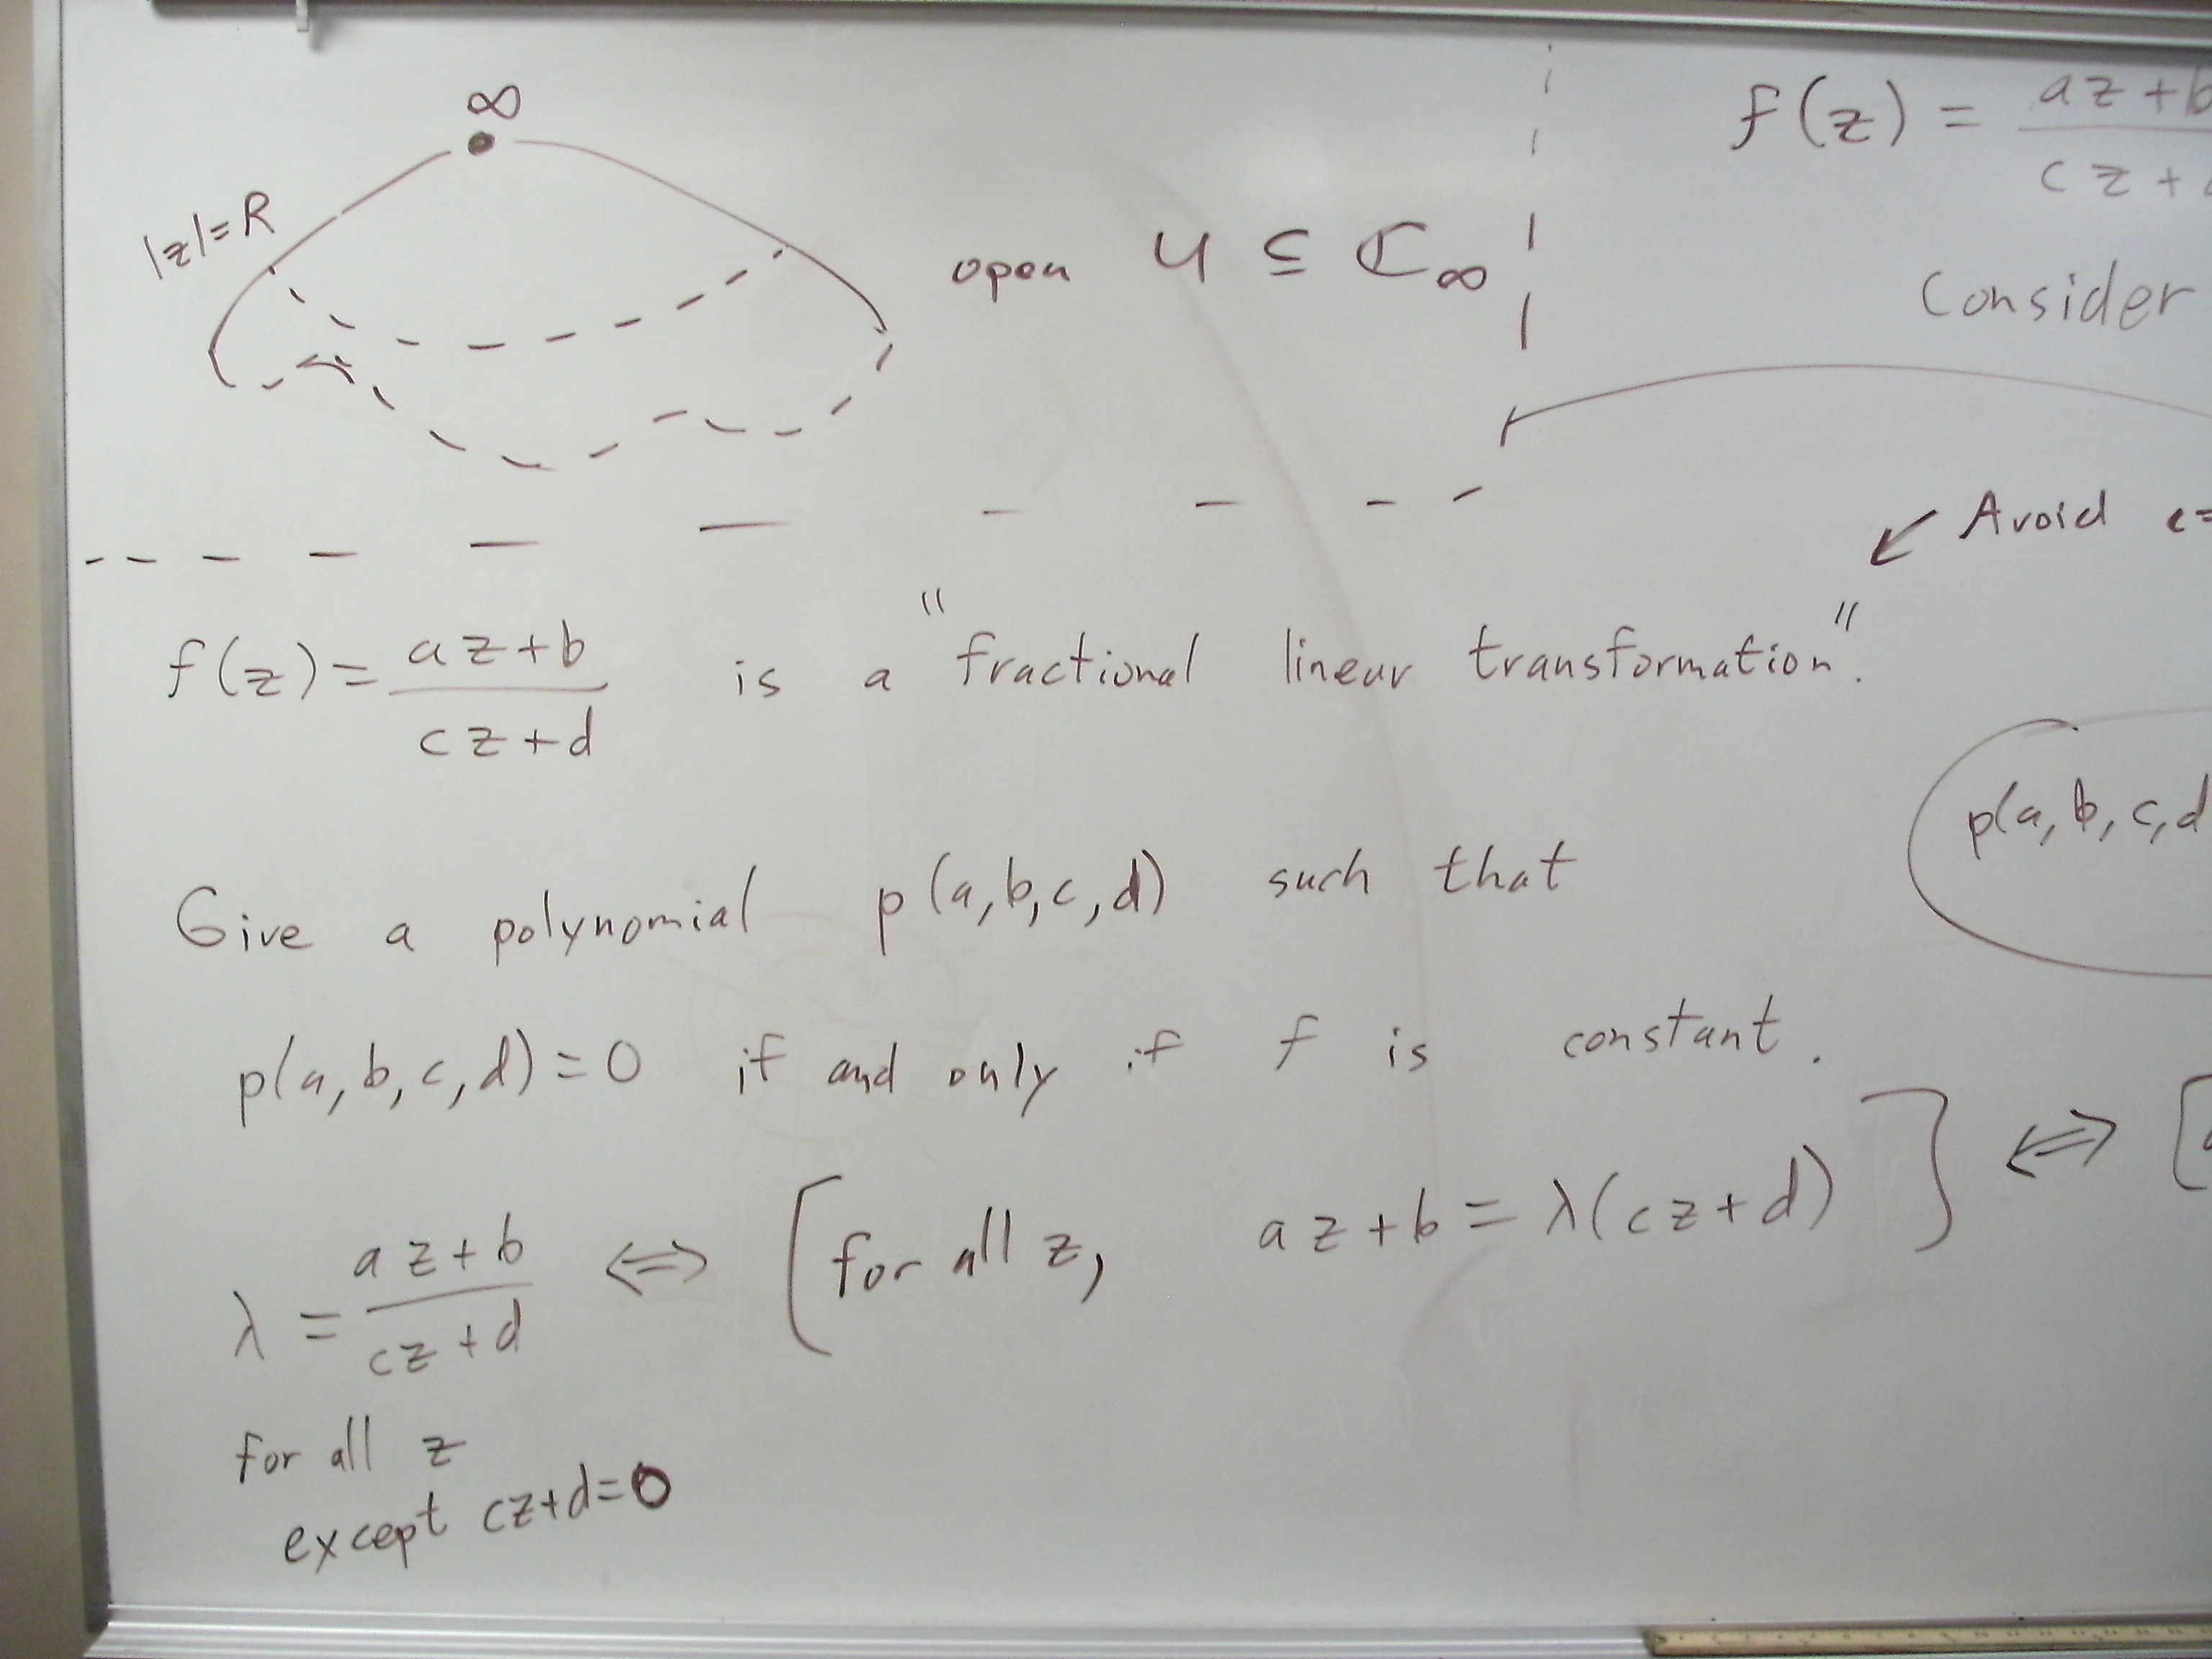 ∞
|z|=R
open U ⊆ ℂ∞
f(z) = az+b / cz+
Consider
Avoid c=
f(z) = az+b / cz+d is a "fractional linear transformation".
p(a, b, c, d
Give a polynomial p(a,b,c,d) such that
p(a, b, c, d) = 0 if and only if f is constant.
λ = az+b / cz+d ⇔ [for all z, az+b = λ(cz+d)] ⇔ [
for all z
except cz+d=0